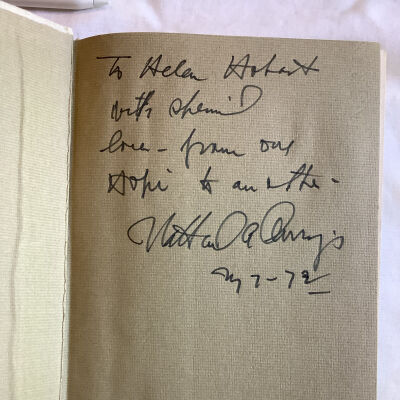 To Helen Hobart
with special
love - from one
Hopi to another -
Nathaniel A Owings
7-72